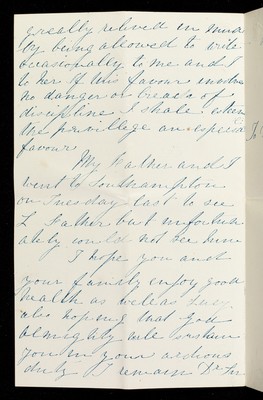 greatly relieved in mind
by being allowed to write
occasionally to me and I
to her If this favour involve
no danger or breach of
discipline I shall esteem
the privilege an especial
favour
My Father and I
went to Southampton
on Tuesday last to see
L Father but unfortun
ately could not see him
I hope you and
your family enjoy good
health as well as Lucy.
also hoping that God
Almighty will
you in your
duty I remain Dr Sir